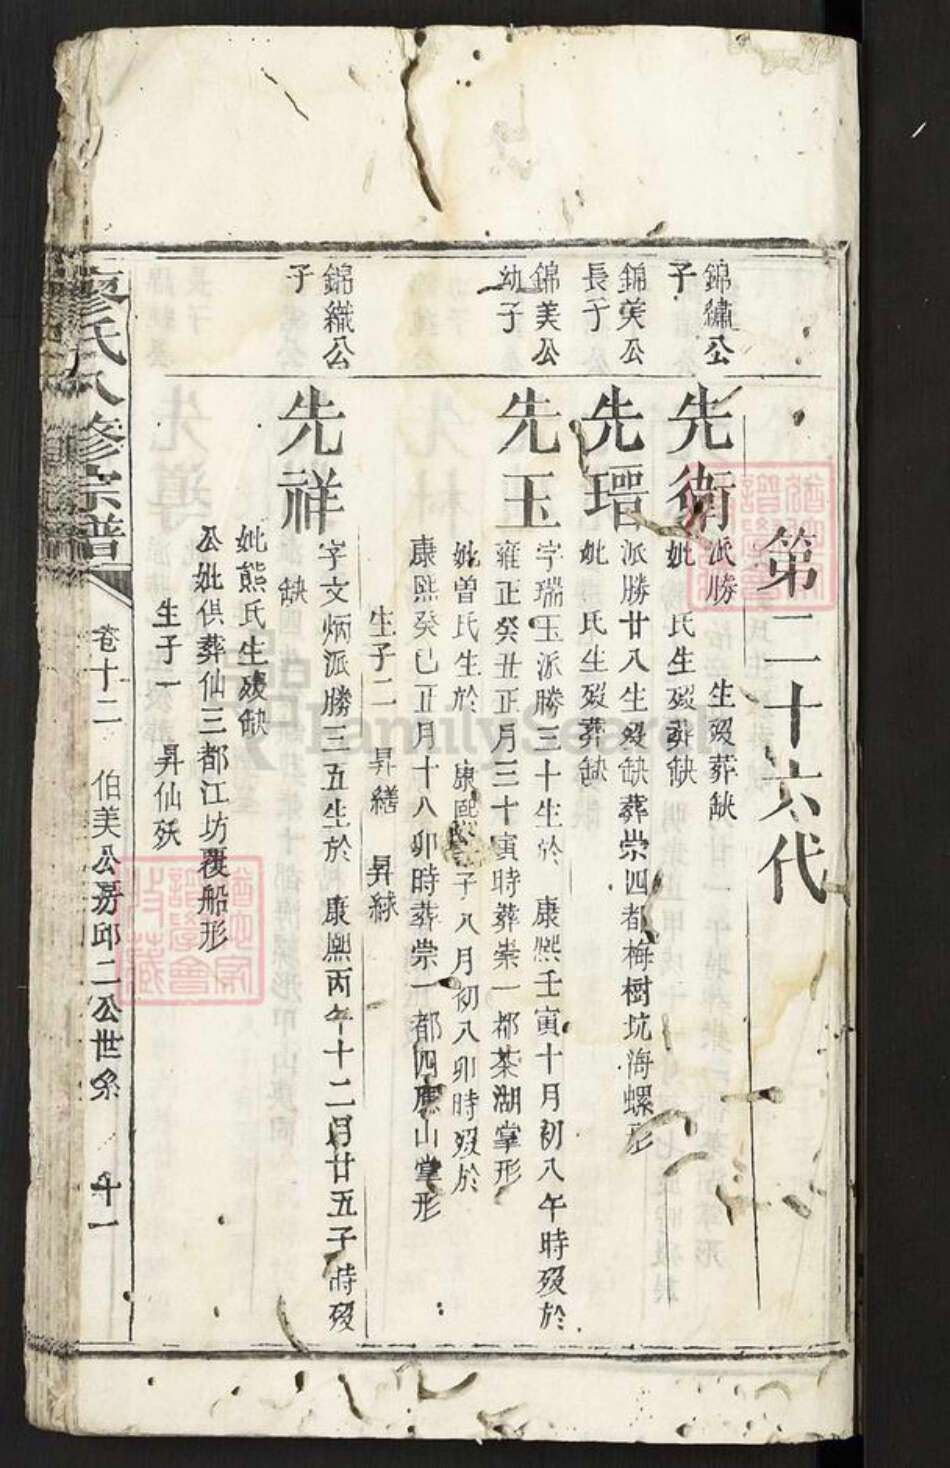 第二十六代
錦繡公
子
先衛
派勝 生歿葬缺
妣 氏生歿葬缺
錦美公
長子
先瑨
派勝廿八生歿缺葬崇四都梅樹坑海螺形
妣 氏生歿葬缺
錦美公
幼子
先玉
字瑞玉派勝三十生於 康熙壬寅十月初八午時歿於
雍正癸丑正月三十寅時葬崇一都茶湖掌形
妣曾氏生於 康熙 子八月初八卯時歿於
康熙癸巳正月十八卯時葬崇一都四應山掌形
生子二 昇繕 昇綠
錦織公
子
先祥
字文炳派勝三五生於 康熙丙午十二月廿五子時歿
缺
妣熊氏生歿缺
公妣俱葬仙三都江坊覆船形
生子一 昇仙殀
廖氏八修宗譜 卷十二 伯美公房邱二公世系 十一
FamilySearch